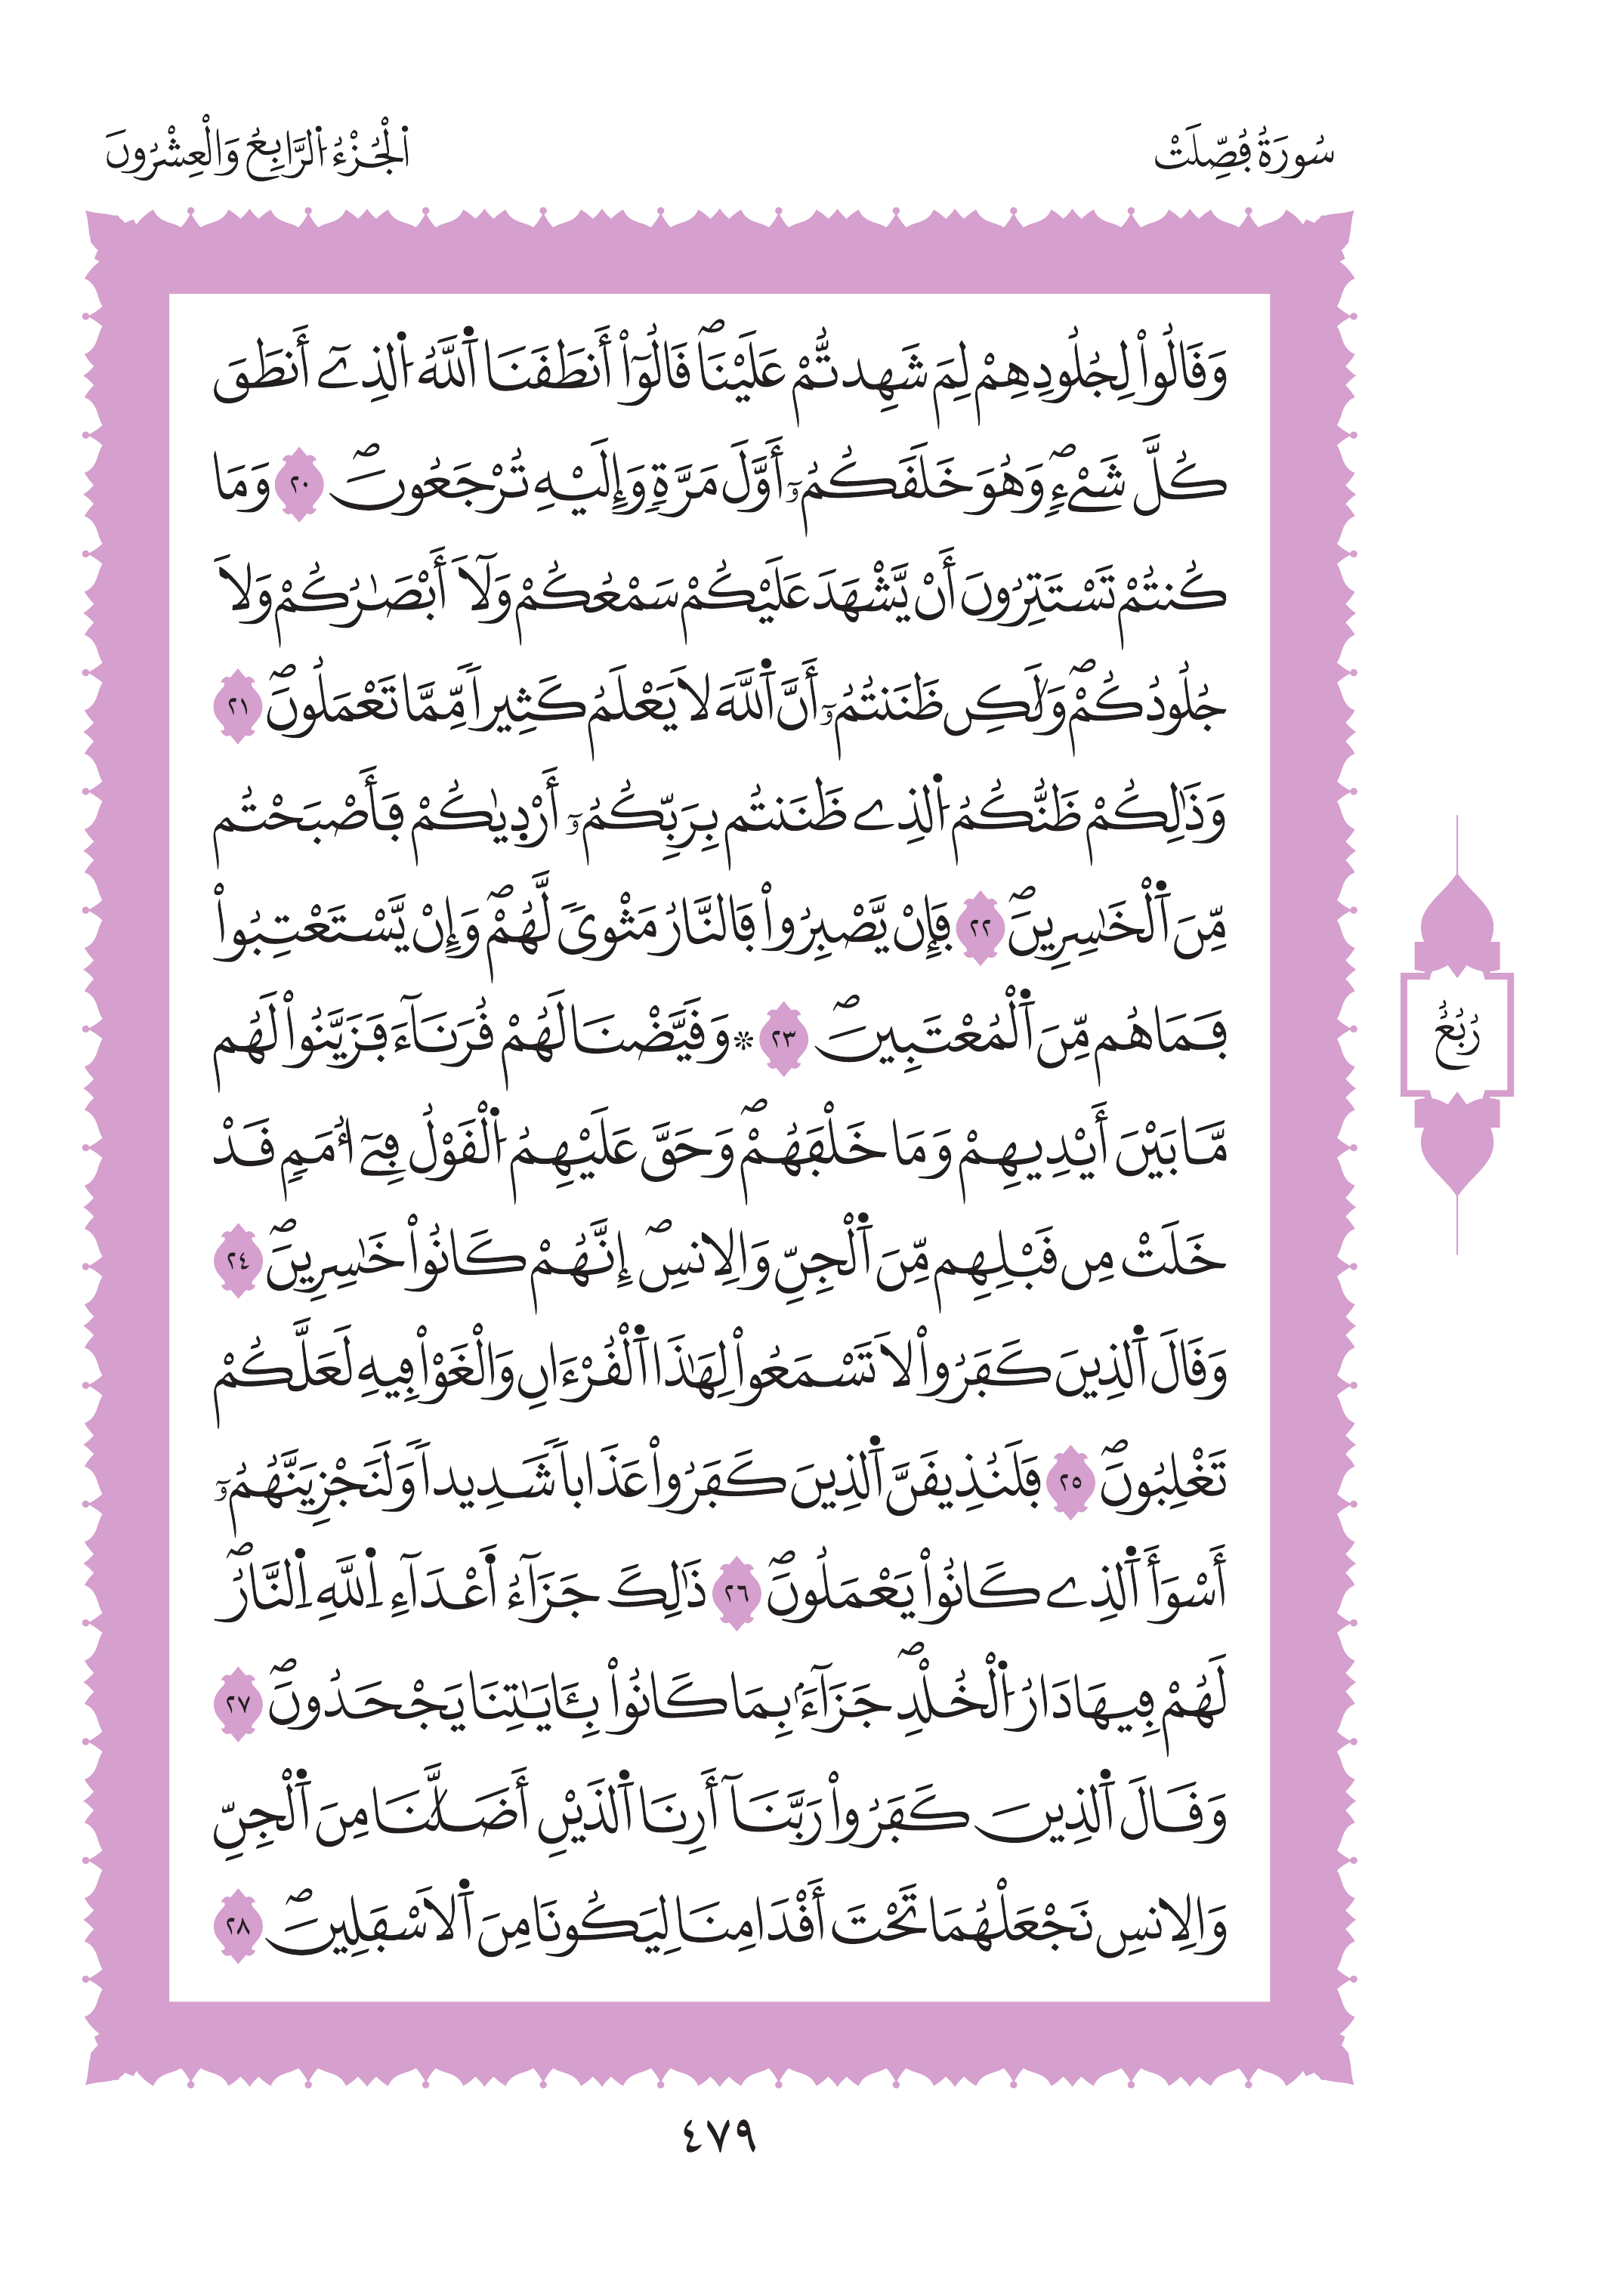 سُورَةُ فُصِّلَتْ
اَ۬لْجُزْءُ اُ۬لرَّابِعُ وَالْعِشْرُونَ
وَقَالُواْ لِجُلُودِهِمْ لِمَ شَهِدتُّمْ عَلَيْنَاۖ قَالُوٓاْ أَنطَقَنَا اَ۬للَّهُ اُ۬لذِےٓ أَنطَقَ
كُلَّ شَےْءٖۖ وَهُوَ خَلَقَكُمُۥٓ أَوَّلَ مَرَّةٖ وَإِلَيْهِ تُرْجَعُونَۖ ٢٠ وَمَا
كُنتُمْ تَسْتَتِرُونَ أَنْ يَّشْهَدَ عَلَيْكُمْ سَمْعُكُمْ وَلَآ أَبْصَٰرُكُمْ وَلَا
جُلُودُكُمْۖ وَلَٰكِن ظَنَنتُمُۥٓ أَنَّ اَ۬للَّهَ لَا يَعْلَمُ كَثِيراٗ مِّمَّا تَعْمَلُونَۖ ٢١
وَذَٰلِكُمْ ظَنُّكُمُ اُ۬لذِے ظَنَنتُم بِرَبِّكُمُۥٓ أَرْد۪يٰكُمْ فَأَصْبَحْتُم
مِّنَ اَ۬لْخَٰسِرِينَۖ ٢٢ فَإِنْ يَّصْبِرُواْ فَالنَّارُ مَثْويٗ لَّهُمْۖ وَإِنْ يَّسْتَعْتِبُواْ
فَمَا هُم مِّنَ اَ۬لْمُعْتَبِينَۖ ٢٣ ۞ وَقَيَّضْنَا لَهُمْ قُرَنَآءَ فَزَيَّنُواْ لَهُم
مَّا بَيْنَ أَيْدِيهِمْ وَمَا خَلْفَهُمْۖ وَحَقَّ عَلَيْهِمُ اُ۬لْقَوْلُ فِےٓ أُمَمٖ قَدْ
خَلَتْ مِن قَبْلِهِم مِّنَ اَ۬لْجِنِّ وَالِانسِۖ إِنَّهُمْ كَانُواْ خَٰسِرِينَۖ ٢٤
وَقَالَ اَ۬لذِينَ كَفَرُواْ لَا تَسْمَعُواْ لِهَٰذَا اَ۬لْقُرْءَانِ وَالْغَوْاْ فِيهِ لَعَلَّكُمْ
تَغْلِبُونَۖ ٢٥ فَلَنُذِيقَنَّ اَ۬لذِينَ كَفَرُواْ عَذَاباٗ شَدِيداٗ وَلَنَجْزِيَنَّهُمُۥٓ
أَسْوَأَ اَ۬لذِے كَانُواْ يَعْمَلُونَۖ ٢٦ ذَٰلِكَ جَزَآءُ اَ۬عْدَآءِ اِ۬للَّهِ اِ۬لنَّارُۖ
لَهُمْ فِيهَا دَارُ اُ۬لْخُلْدِۖ جَزَآءَۢ بِمَا كَانُواْ بِـَٔايَٰتِنَا يَجْحَدُونَۖ ٢٧
وَقَالَ اَ۬لذِينَ كَفَرُواْ رَبَّنَآ أَرِنَا اَ۬لذَيْنِ أَضَلَّٰنَا مِنَ اَ۬لْجِنِّ
وَالِانسِ نَجْعَلْهُمَا تَحْتَ أَقْدَامِنَا لِيَكُونَا مِنَ اَ۬لَاسْفَلِينَۖ ٢٨
رُبُعُ
٤٧٩